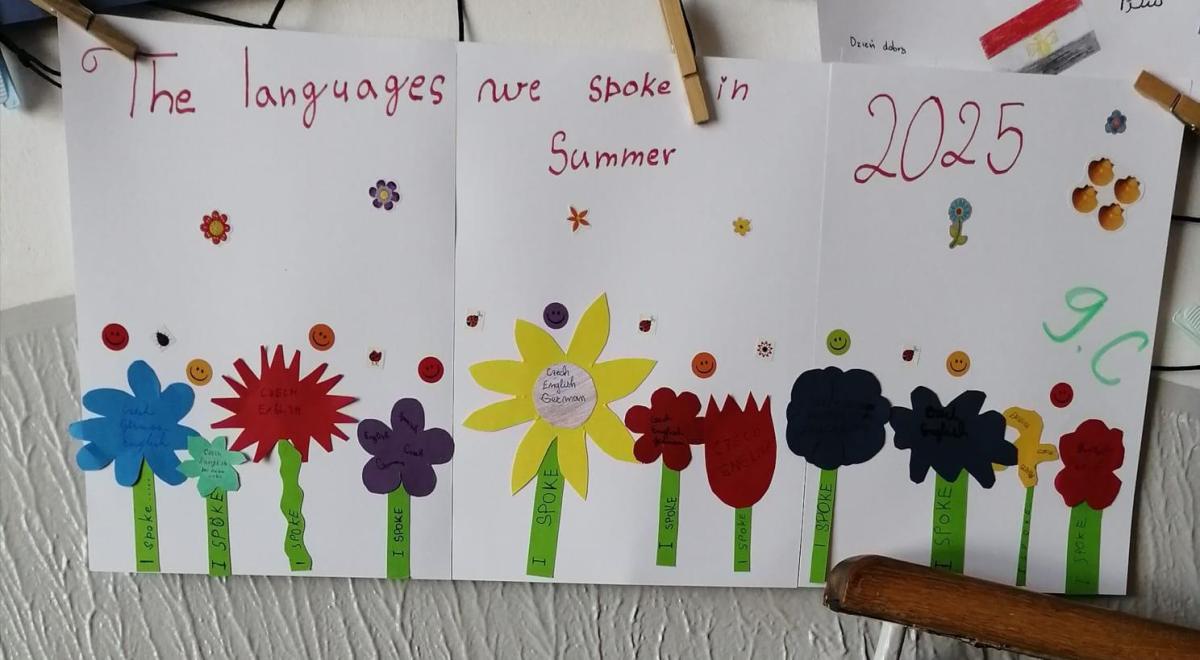 The languages we spoke in 2025
Summer
Dzień dobry
9.C
Czech
German
English
I spoke.....
Czech
English
I SPOKE
CZECH
ENGLISH
I SPOKE
English
Czech
I SPOKE
Czech
English
German
I SPOKE
Czech
English
German
I SPOKE
CZECH
ENGLISH
I SPOKE
I SPOKE
Czech
English
I SPOKE
I SPOKE
I SPOKE